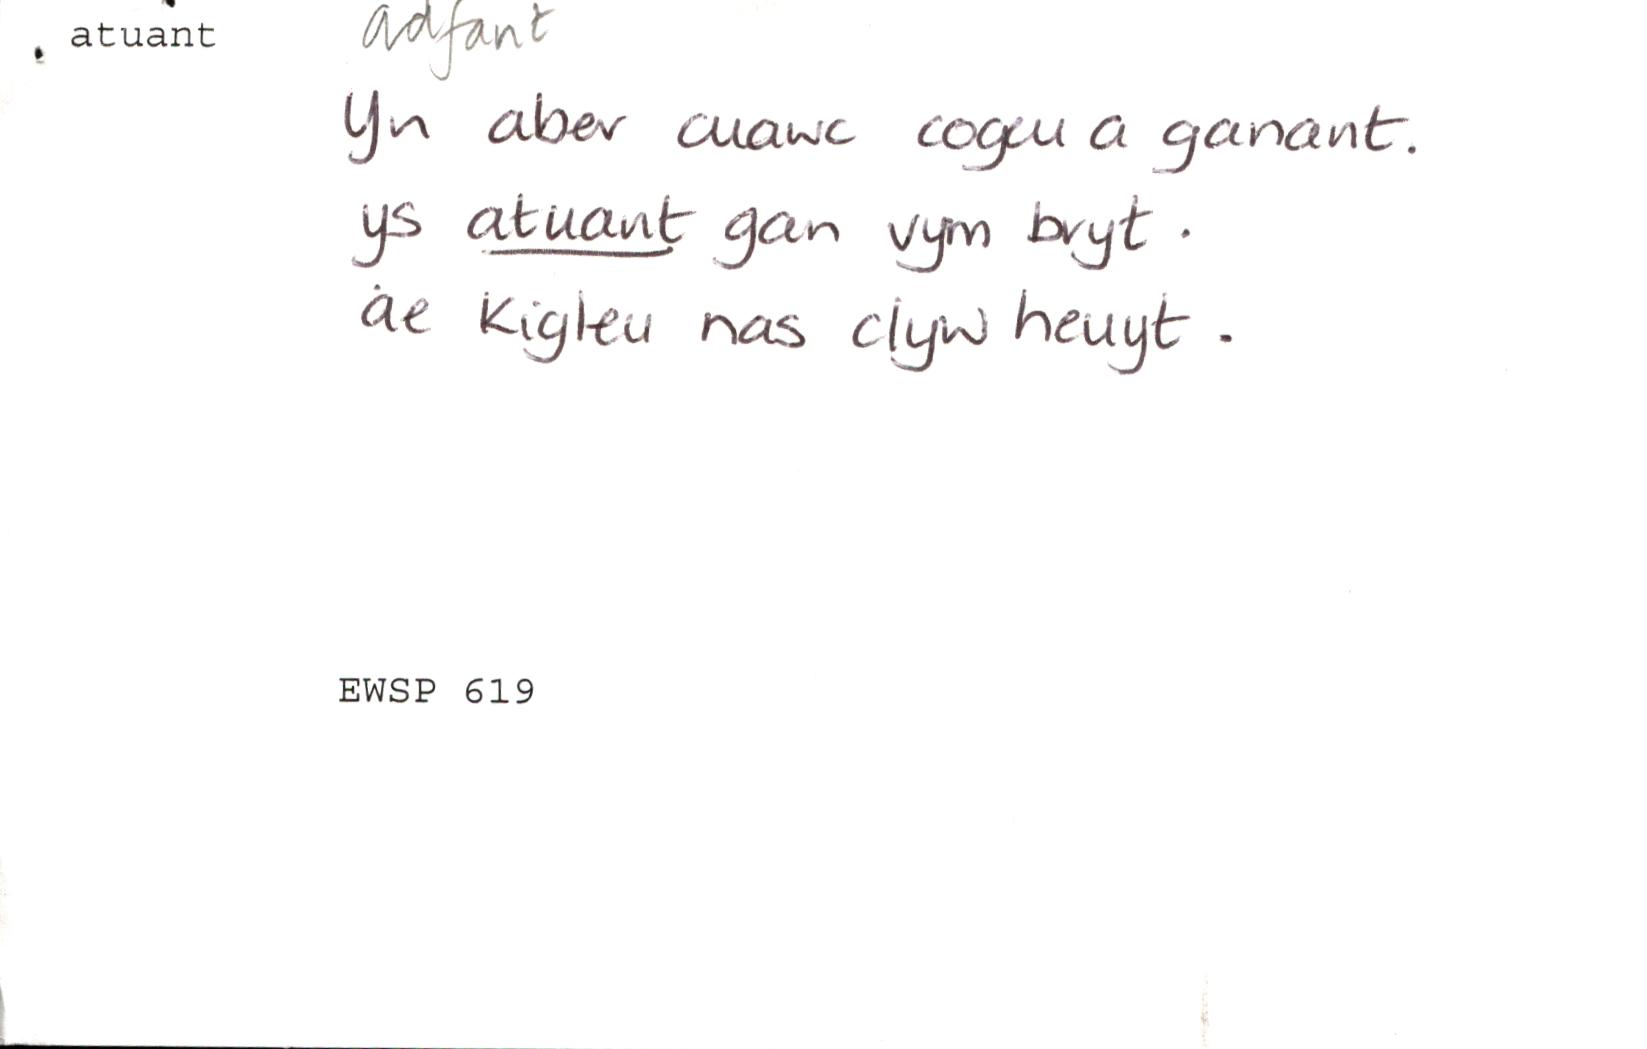 atuant adfant
Yn aber cuawc cogeu a ganant.
ys atuant gan vym bryt.
ae kigleu nas clyw heuyt.
EWSP 619